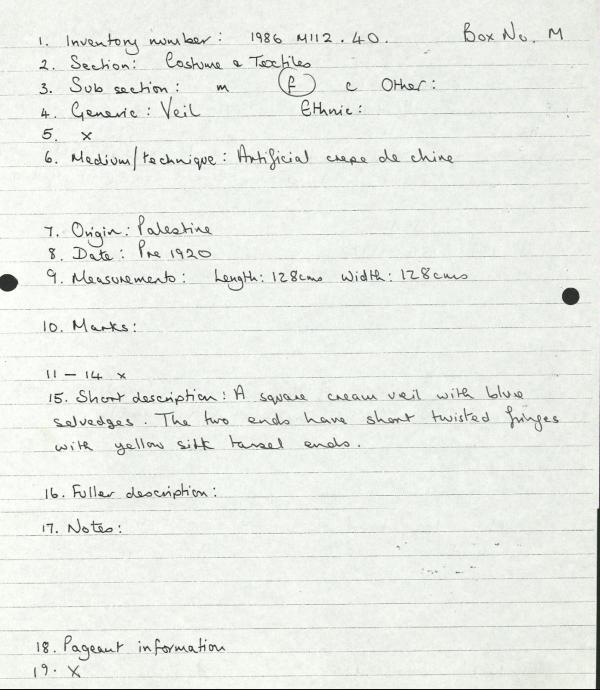 1. Inventory number: 1986 M112.40. Box No. M
2. Section: Costume & Textiles
3. Sub section: m f c Other:
4. Generic: Veil Ethnic:
5. x
6. Medium/technique: Artificial crepe de chine
7. Origin: Palestine
8. Date: Pre 1920
9. Measurements: Length: 128cms Width: 128cms
10. Marks:
11 - 14 x
15. Short description: A square cream veil with blue
selvedges. The two ends have short twisted fringes
with yellow silk tassel ends.
16. Fuller description:
17. Notes:
18. Pageant information
19. X